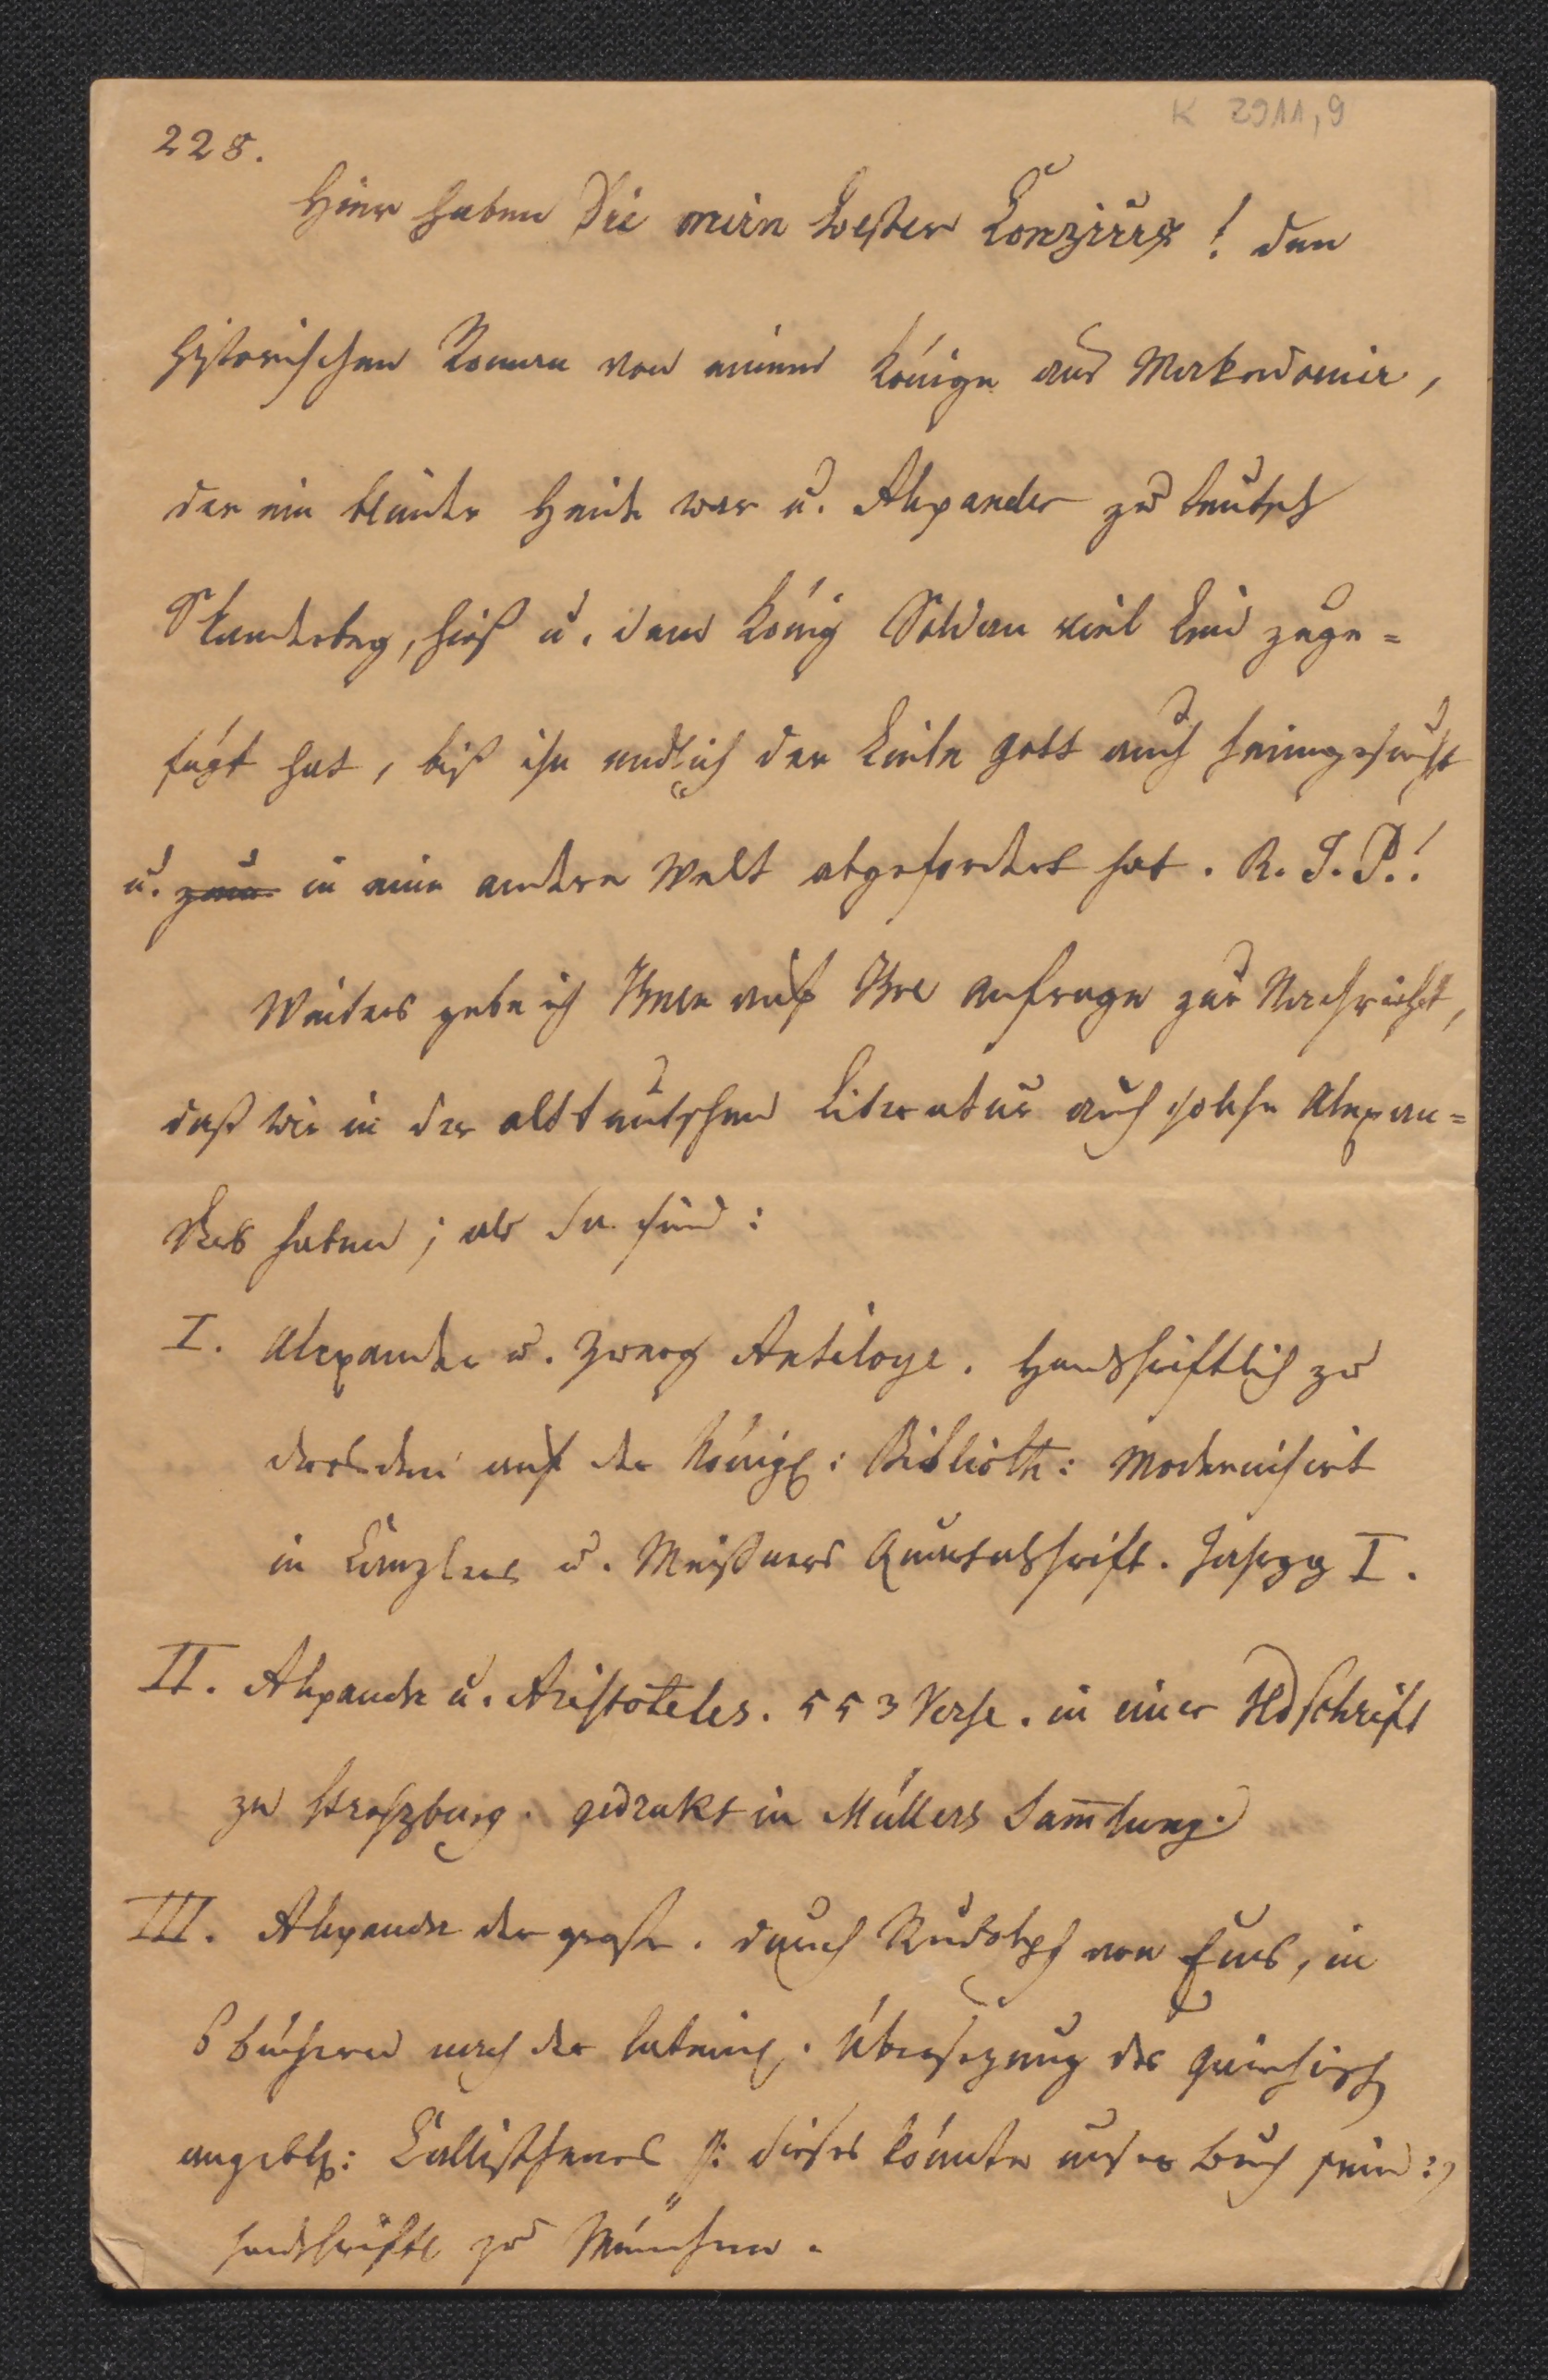 K 2911,9
228.
Hier haben Sie mein bester ! den
historischen Roman von einem Könige aus Makedonia,
der ein blinder Heide war u. Alexander zu teutsch
Skanderbeg, hieß u. dem König Soldan viel Leid zuge=
fügt hat, biß ihn endlich der liebe Gott auch heimgesucht
u. in eine andere Welt abgefordert hat. R. I. P.!
Weiters gebe ich Ihnen auf Ihre Anfrage zur Nachricht,
daß wir in der altteutschen Literatur auch solche Alexan=
ders haben; als da sind:
I. Alexander u. Zwerg Antiloye. Handschriftlich zu
Dresden auf der Königl: Biblioth: Modernisirt
in Canzlers u. Meißners Quartalschrift. Jahrgg I.
II. Alexander u. Aristoteles. 553 Verse. in einer Hdschrift
zu Straszburg. gedrukt in Müllers Sam̅lung.
III. Alexander der große. durch Rudolph von Ems, in
6 büchern nach der lateinisch. Übersezung des griechisch
angebl: Callisthenes /: dieses könnte unser Buch sein :/
handschriftl zu München.